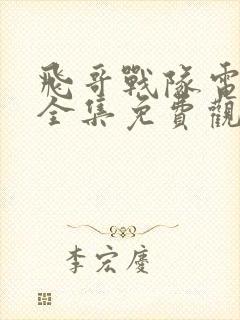 飛哥戰隊電
全集免費觀
李宏慶